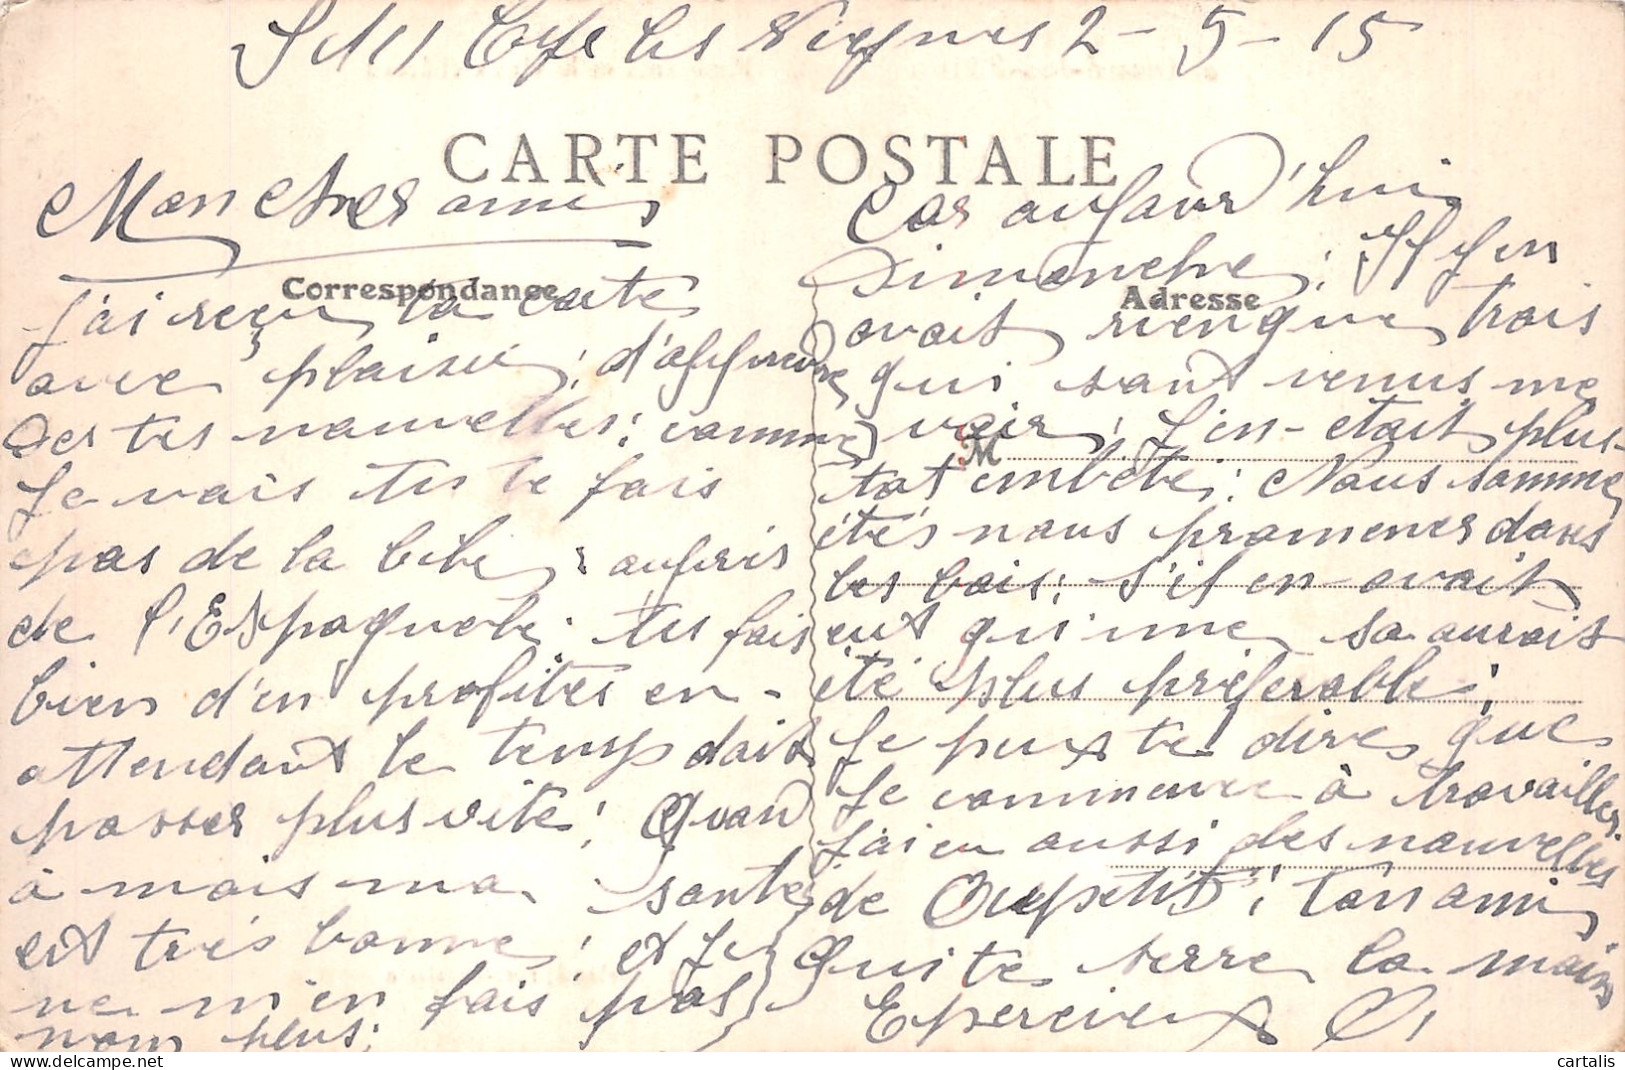 les Vignes 2-5-15
CARTE POSTALE
Mon cher ami
Correspondance
J'ai reçu la carte
avec plaisir; d'apprendre
des tes nouvelles: comme
Je vais tu te fais
pas de la bile; aupris
de l'Espagnole; tu fais
bien d'en profites en-
attendant le temp dait
passer plus vite; Quand
à mais ma santé
est très bonne; et Je
ne m'en fais pas
nom plus;
Car aujourd'hui
Dimanche; Il y en
Adresse
avait rien que trois
qui sant venus me
voir; J'en-était plus-
M
tot embêté; Nous somme
étés nous promener dans
les bois; s'il en avait
eut qu'une sa aurait
été plus préferable;
Je peux te dire que
Je commence à travailler.
J'ai eu aussi des nouvelles
de Oupetit; Ton ami
Qui te serre la main
Epervier
cartalis